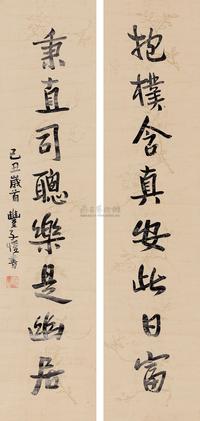 抱樸含真安此日富
秉直司聰樂是幽居
己丑歲首豐子愷書